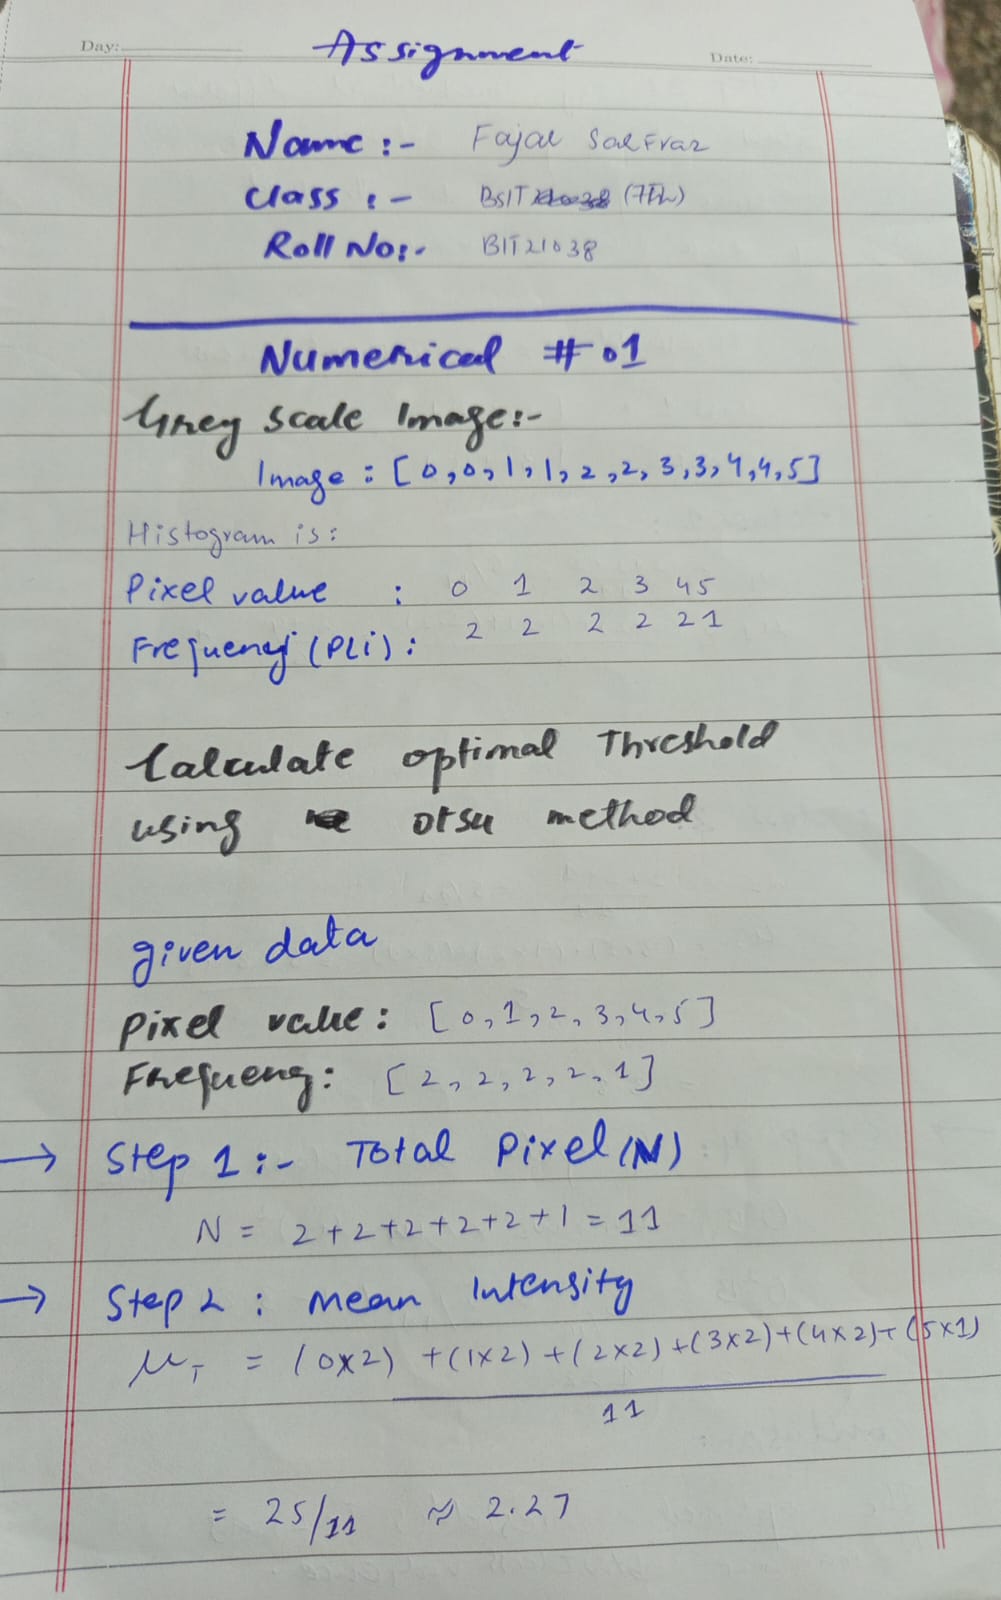 Day:
Assignment
Date:
Name :- Fajar Sarfraz
Class :- BSIT (7th)
Roll No:- BIT21038
Numerical # 01
Grey scale Image:-
Image : [0,0,1,1,2,2,3,3,4,4,5]
Histogram is:
Pixel value : 0 1 2 3 4 5
Frequency (PLi): 2 2 2 2 2 1
Calculate optimal Threshold
using otsu method
given data
Pixel value: [0,1,2,3,4,5]
Frequency: [2,2,2,2,1]
→ Step 1:- Total Pixel (N)
N = 2+2+2+2+2+1 = 11
→ Step 2 : Mean Intensity
μT = (0x2) + (1x2) + (2x2) + (3x2) + (4x2) + (5x1)
11
= 25/11 ≈ 2.27